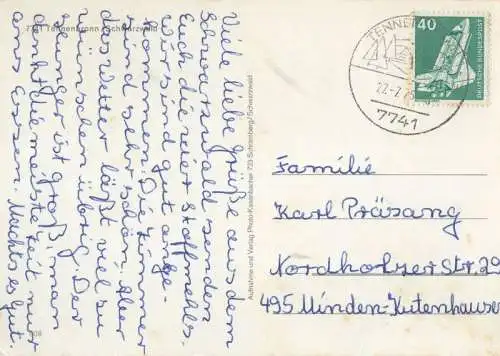 7741 Tennenbronn / Schwarzwald
Viele liebe Grüße aus dem
Schwarzwald senden
Euch die vier Stoffmehls.
Wir sind gut ange-
kommen. Die Zimmer
sind sehr schön. Aber
das Wetter läßt viel zu
wünschen übrig. Der
Hunger ist groß, man
denkt die meiste Zeit nur
ans Essen. Machts es gut.
Aufnahme und Verlag Photo-Kasenbacher 723 Schramberg/Schwarzwald
TENNE
7741
40
DEUTSCHE BUNDESPOST
Familie
Karl Präsang
Nordholzer Str. 29
495 Minden-Kutenhausen